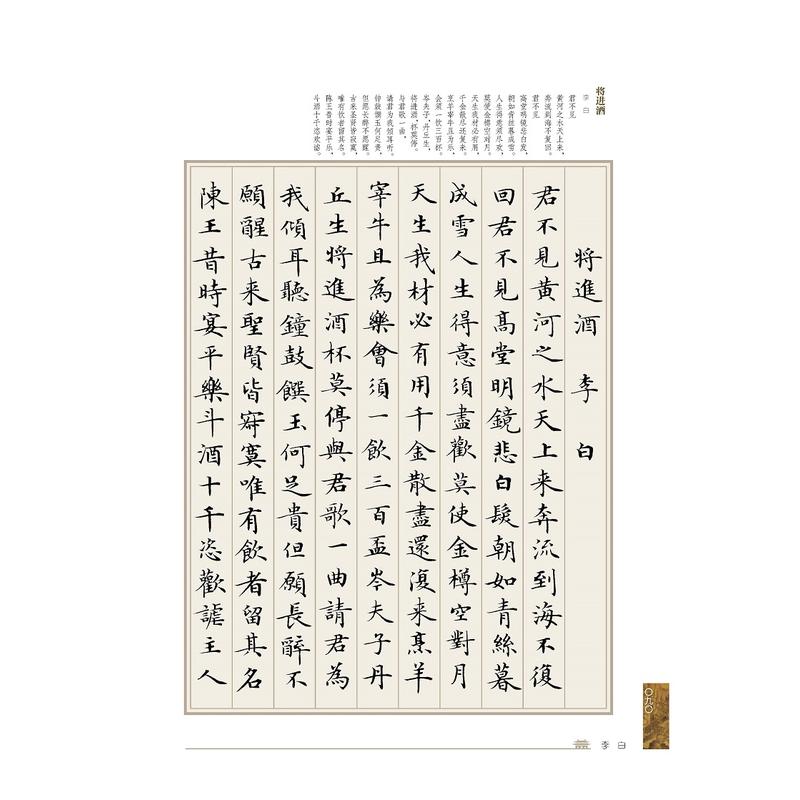 将进酒
李白
君不见
黄河之水天上来，
奔流到海不复回。
君不见
高堂明镜悲白发，
朝如青丝暮成雪。
人生得意须尽欢，
莫使金樽空对月。
天生我材必有用，
千金散尽还复来。
烹羊宰牛且为乐，
会须一饮三百杯。
岑夫子，丹丘生，
将进酒，杯莫停。
与君歌一曲，
请君为我倾耳听。
钟鼓馔玉何足贵，
但愿长醉不愿醒。
古来圣贤皆寂寞，
唯有饮者留其名。
陈王昔时宴平乐，
斗酒十千恣欢谑。
將進酒 李白
君不見黃河之水天上来奔流到海不復
回君不見高堂明鏡悲白髮朝如青絲暮
成雪人生得意須盡歡莫使金樽空對月
天生我材必有用千金散盡還復来烹羊
宰牛且為樂會須一飲三百盃岑夫子丹
丘生將進酒杯莫停與君歌一曲請君為
我傾耳聽鐘鼓饌玉何足貴但願長醉不
願醒古来聖賢皆寂寞唯有飲者留其名
陳王昔時宴平樂斗酒十千恣歡謔主人
李白
〇九〇